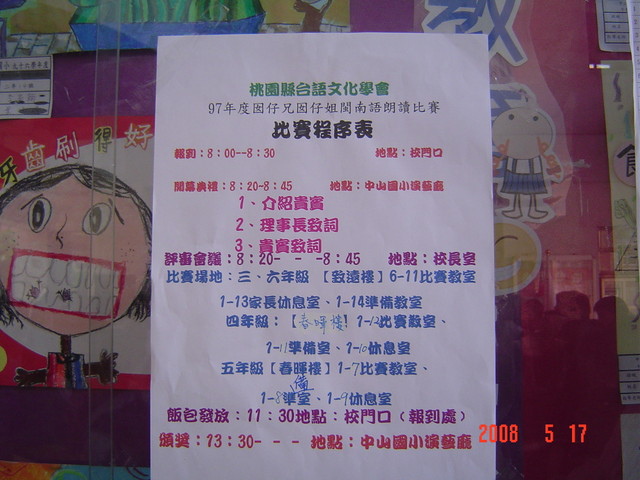 桃園縣台語文化學會
97年度囡仔兄囡仔姐閩南語朗讀比賽
比賽程序表
報到：8：00--8：30 地點：校門口
開幕典禮：8：20-8：45 地點：中山國小演藝廳
1、介紹貴賓
2、理事長致詞
3、貴賓致詞
評審會議：8：20- - -8：45 地點：校長室
比賽場地：三、六年級【致遠樓】6-11比賽教室
1-13家長休息室、1-14準備教室
四年級：【春暉樓】1-12比賽教室、
1-11準備室、1-10休息室
五年級【春暉樓】1-7比賽教室、
備
1-8準室、1-9休息室
飯包發放：11：30地點：校門口（報到處）
頒獎：13：30- - - 地點：中山國小演藝廳
牙齒刷得好
教
2008 5 17